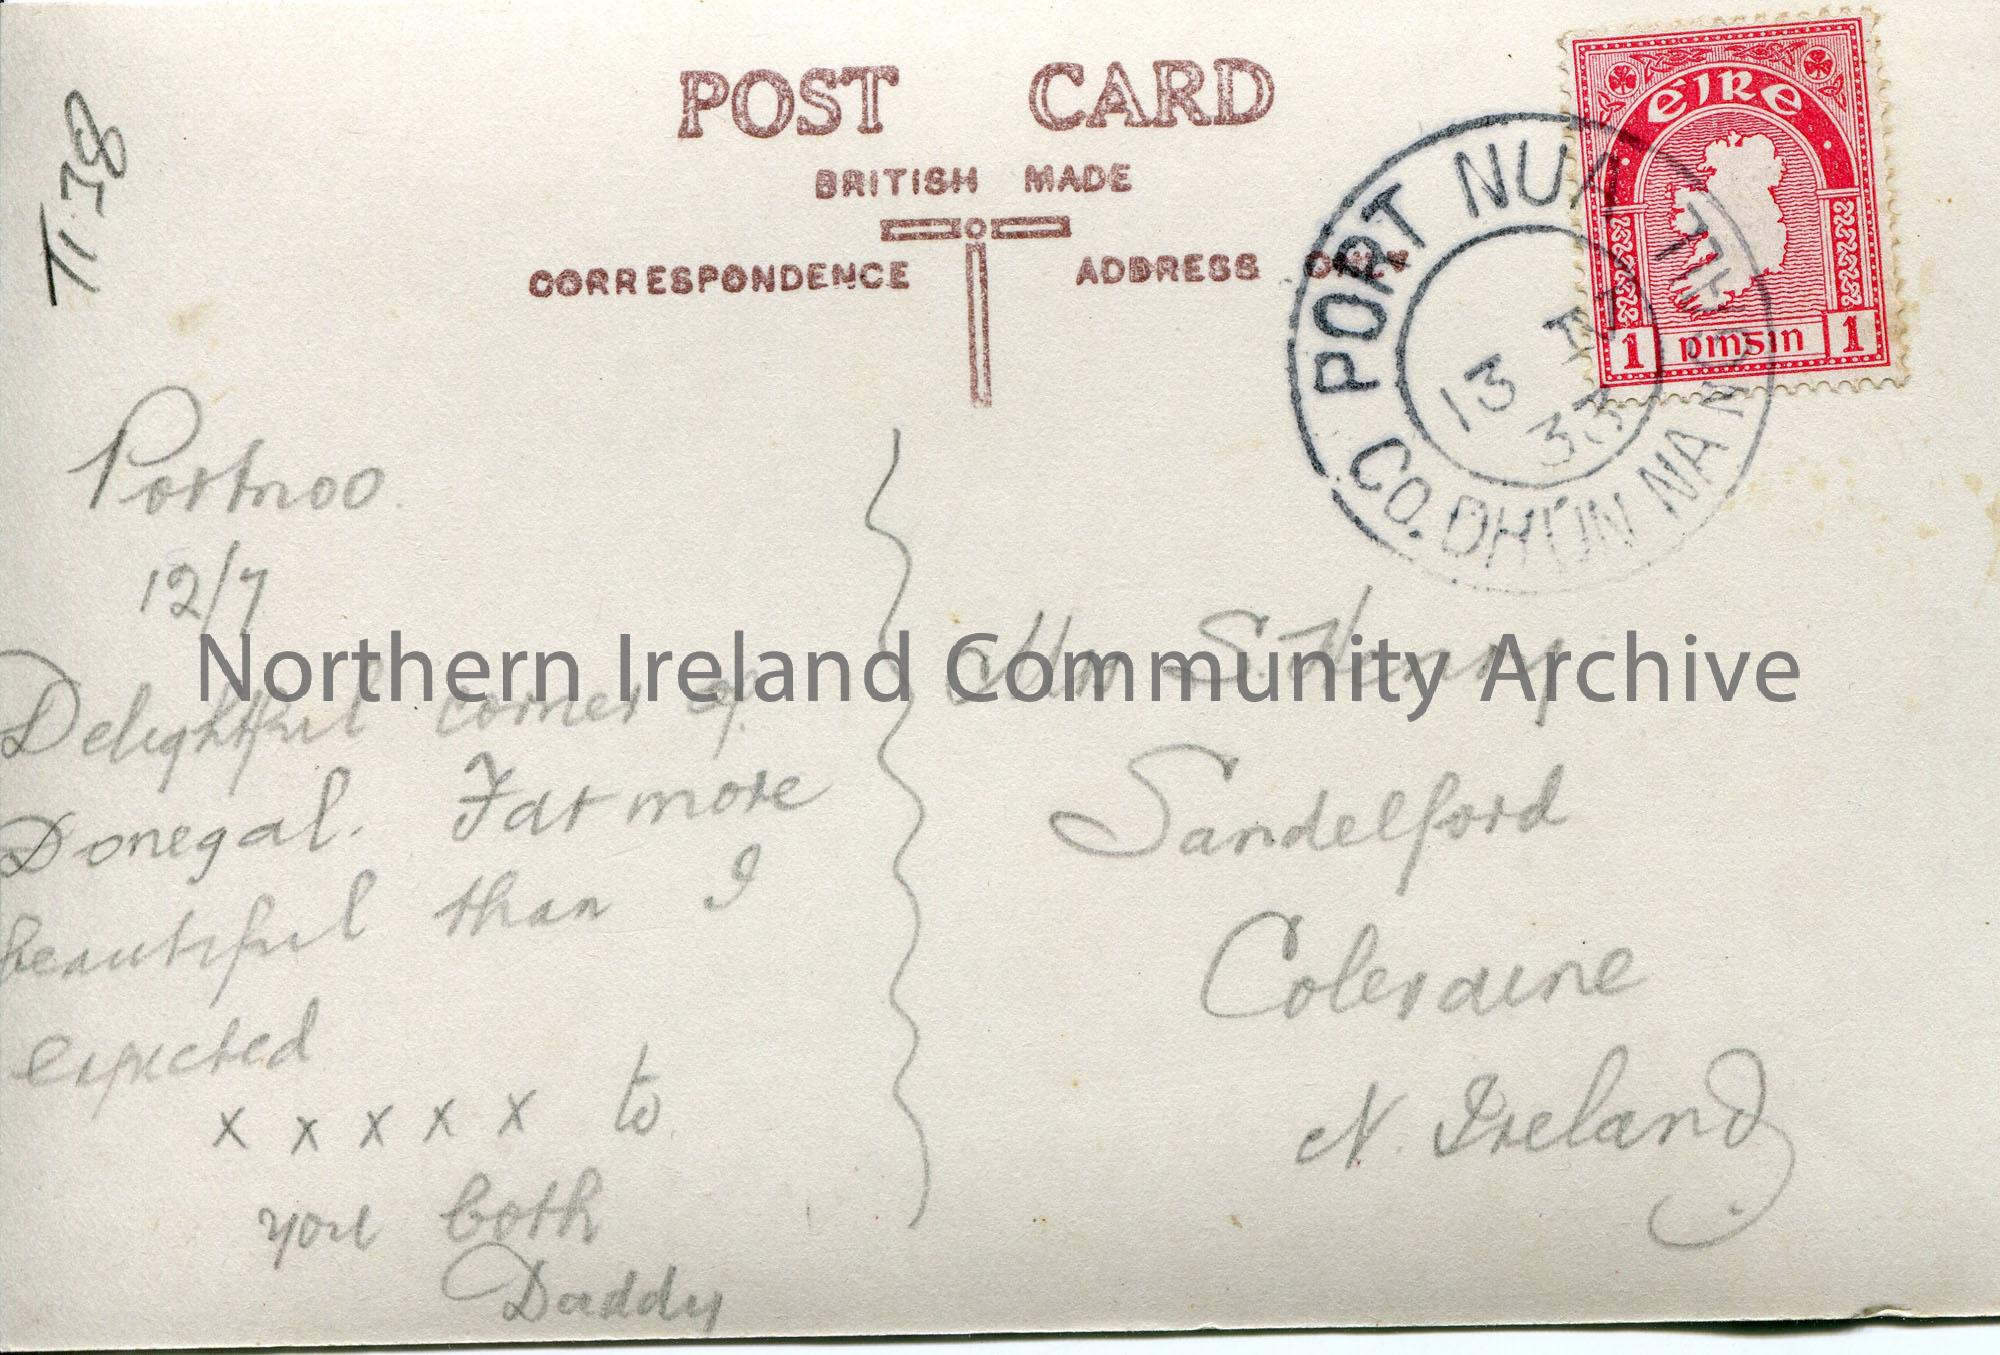 T1.38
POST CARD
BRITISH MADE
CORRESPONDENCE
ADDRESS ONLY
EIRE
1 pinsin 1
PORT NUA
CO. DHÚN NA NGALL
13
33
Portnoo.
12/7
Delightful corner of
Donegal. Far more
beautiful than I
expected
x x x x x to
you both
Daddy
Mrs S. Henry
Sandelford
Coleraine
N. Ireland
Northern Ireland Community Archive